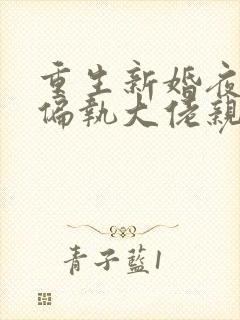 重生新婚夜
偏执大佬親
青子藍1